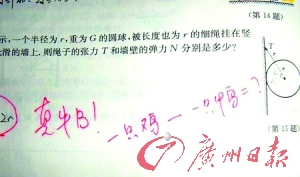 (第 14 题)
示,一个半径为 r,重为 G 的圆球,被长度也为 r 的细绳挂在竖
光滑的墙上.则绳子的张力 T 和墙壁的弹力 N 分别是多少?
T
2r
真牛B!
一只鸡一一只鸭=?
(第 15 题)
廣州日报